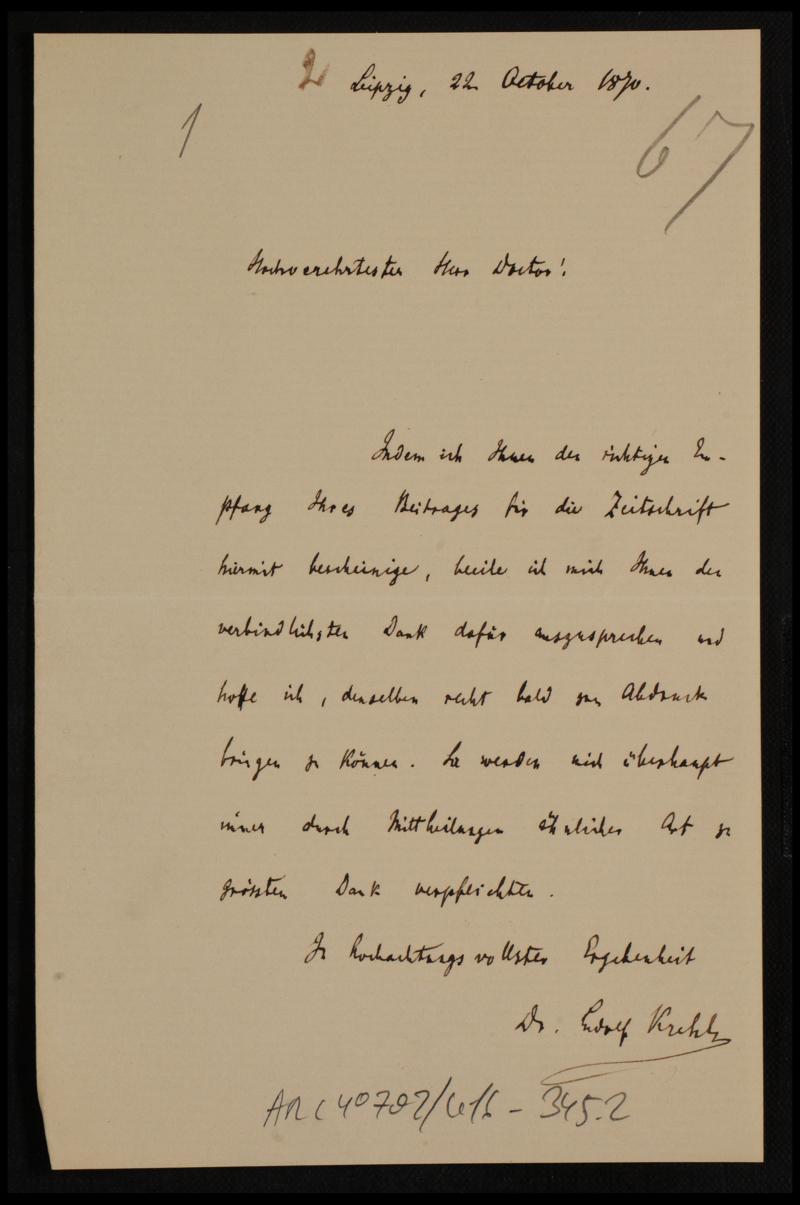 2 Leipzig, 22 October 1870.
1
67
Hochverehrtester Herr Doctor!
Indem ich Ihnen den richtigen Em-
pfang Ihres Beitrages für die Zeitschrift
hiermit bescheinige, beeile ich mich Ihnen den
verbindlichsten Dank dafür auszusprechen und
hoffe ich, denselben recht bald zum Abdruck
bringen zu können. Sie werden mich überhaupt
immer durch Mittheilungen ähnlicher Art zu
grössten Dank verpflichten.
In hochachtungsvollster Ergebenheit
Dr. Ludolf Krehl
ARC 40792/416-345.2